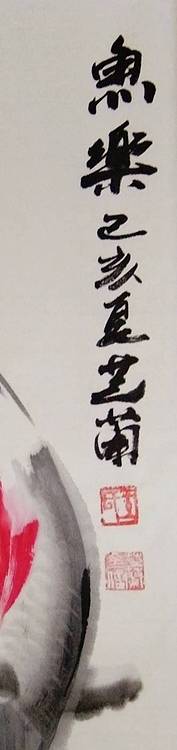 魚樂己亥夏芝蘭